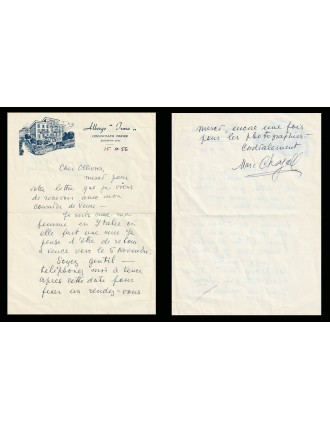 Albergo "Terme"
15 56
Cher
merci pour
votre lettre que je viens
de recevoir avec mon
courrier de Vence –
Je suis avec ma
femme en Italie où
elle fait une cure Je
pense d'être de retour
à Vence vers le 5 Novembre.
Soyez gentil –
téléphonez moi à Vence
après cette date pour
fixer un rendez-vous
merci, encore une fois
pour les photographies
Cordialement
Marc Chagall